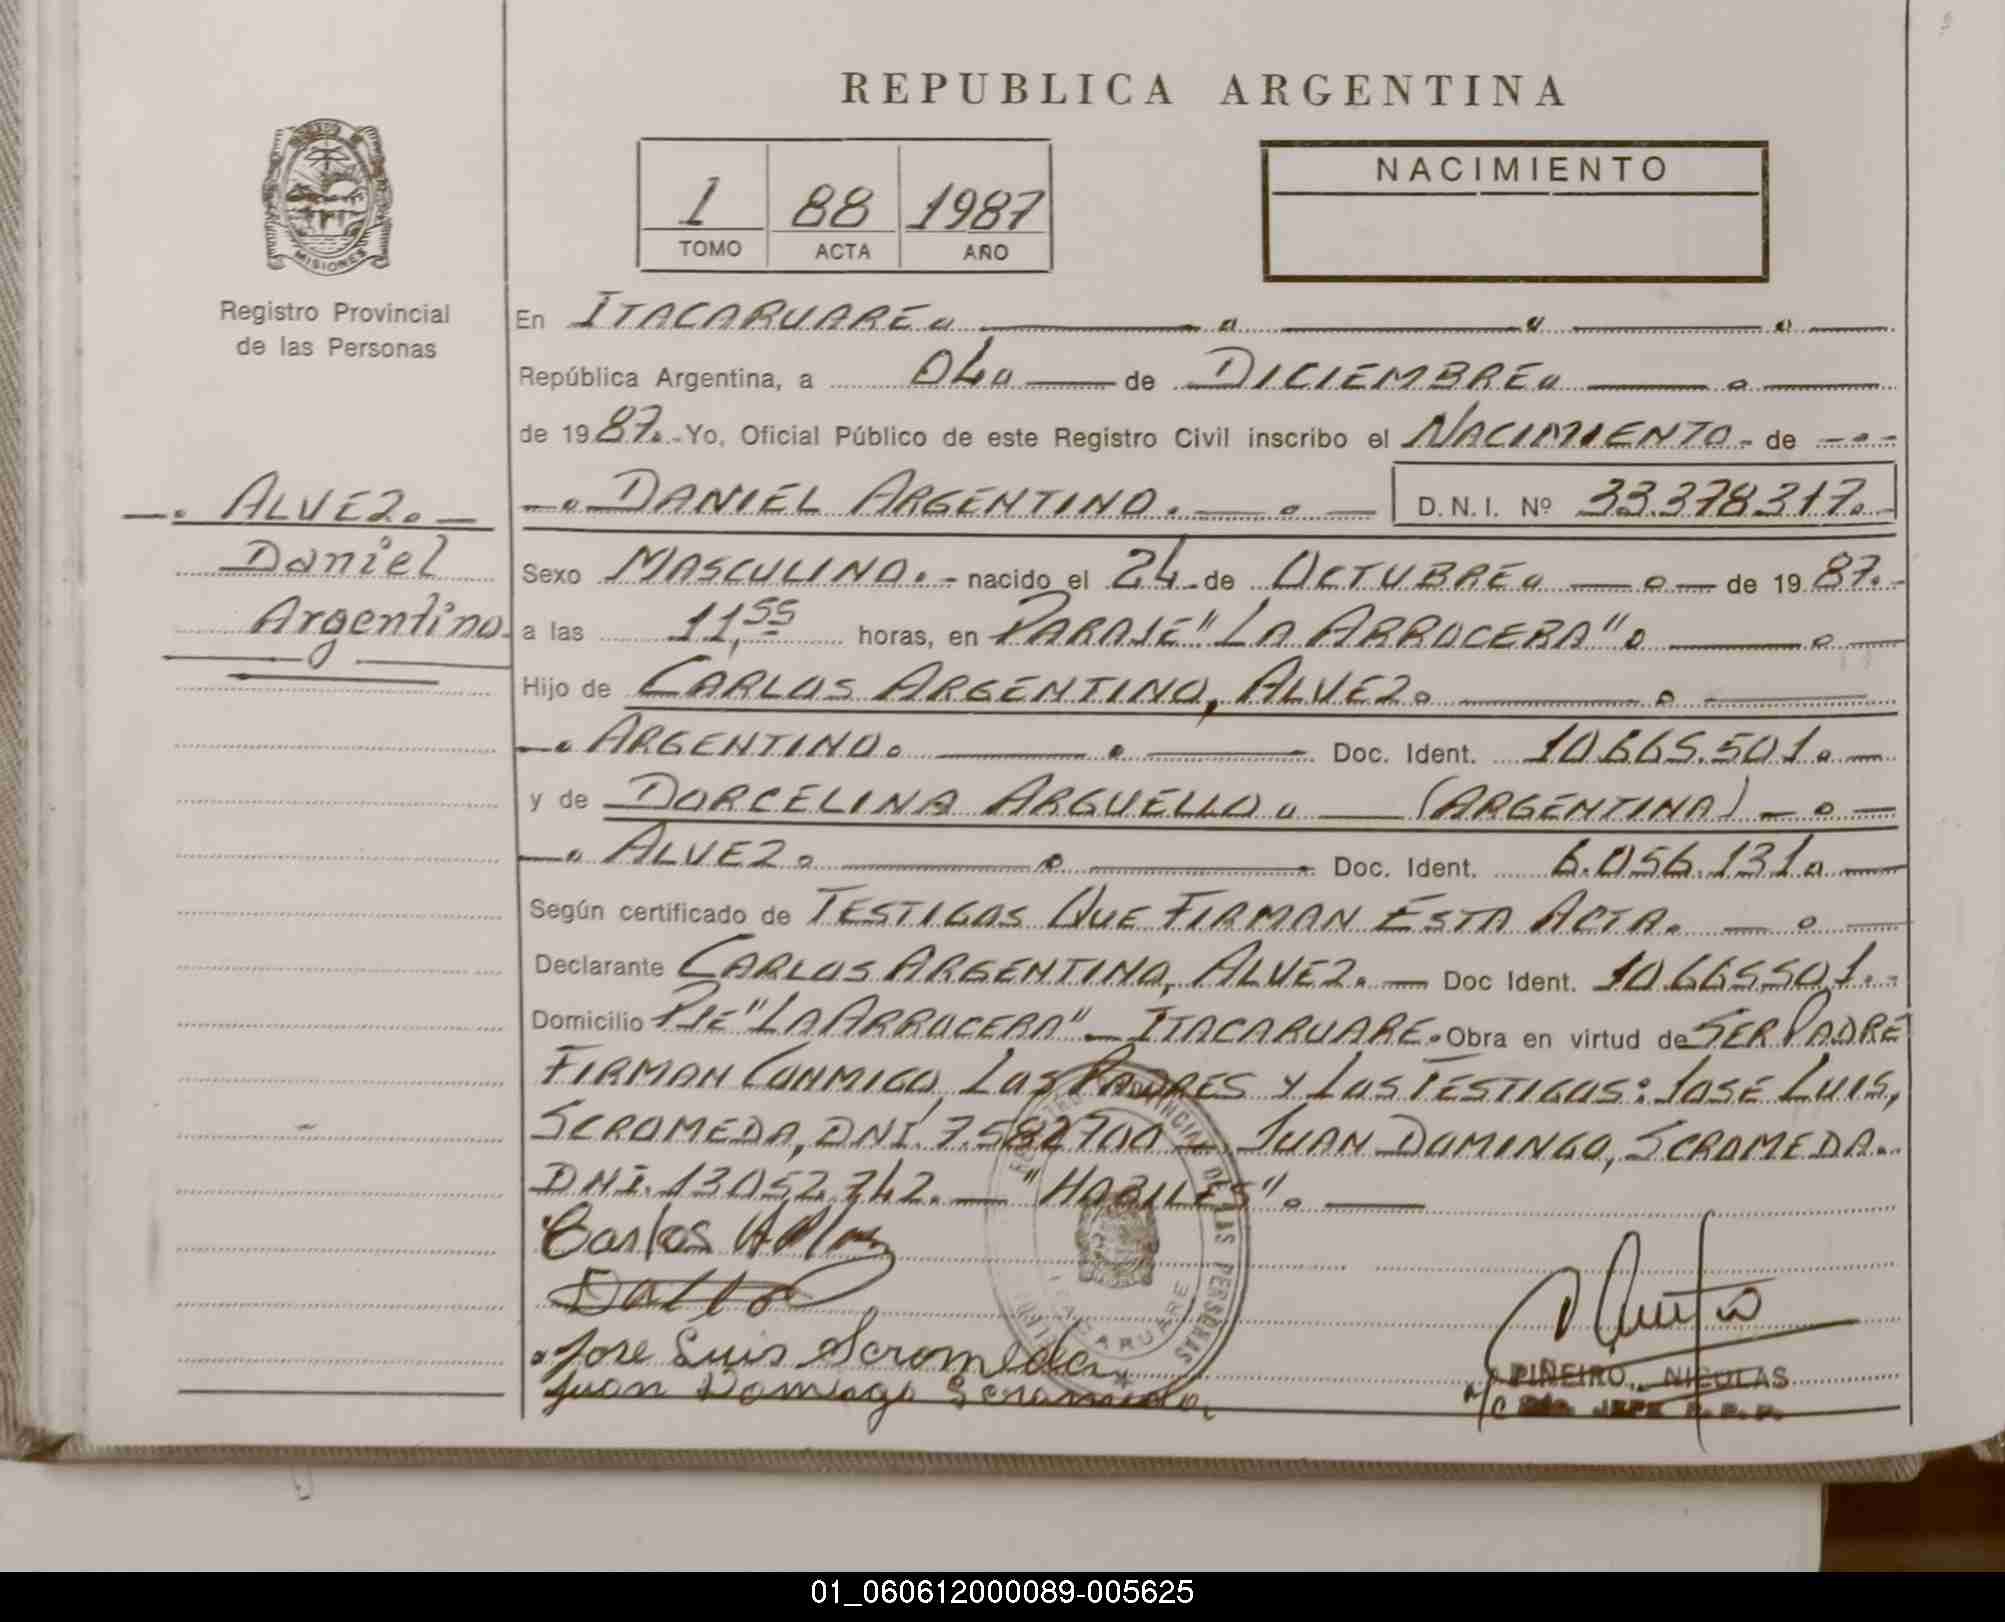 REPUBLICA ARGENTINA
MISIONES
Registro Provincial
de las Personas
1 88 1987
TOMO ACTA AÑO
NACIMIENTO
ALVEZ.
Daniel
Argentino.
En ITACARUARE.
República Argentina, a 04. de DICIEMBRE.
de 1987. Yo, Oficial Público de este Registro Civil inscribo el NACIMIENTO. de
DANIEL ARGENTINO. D.N.I. Nº 33.378.317.
Sexo MASCULINO. nacido el 24 de OCTUBRE. de 1987.
a las 11,55 horas, en PARAJE "LA ARROCERA".
Hijo de CARLOS ARGENTINO, ALVEZ.
ARGENTINO. Doc. Ident. 10.665.501.
y de DORCELINA ARGUELLO. (ARGENTINA)
ALVEZ. Doc. Ident. 6.056.131.
Según certificado de TESTIGOS QUE FIRMAN ESTA ACTA.
Declarante CARLOS ARGENTINO, ALVEZ. Doc Ident. 10.665.501.
Domicilio PJE "LA ARROCERA" - ITACARUARE. Obra en virtud de SER PADRE
FIRMAN CONMIGO, LOS PADRES Y LOS TESTIGOS: JOSE LUIS,
SCROMEDA, DNI. 7.582700 - JUAN DOMINGO, SCROMEDA.
DNI. 13.052.742. - "HABILES".
Carlos
Jose Luis Scromeda
Juan Domingo Scromeda
PIÑEIRO, NICOLAS
DE LAS PERSONAS
ITACARUARE
01_060612000089-005625